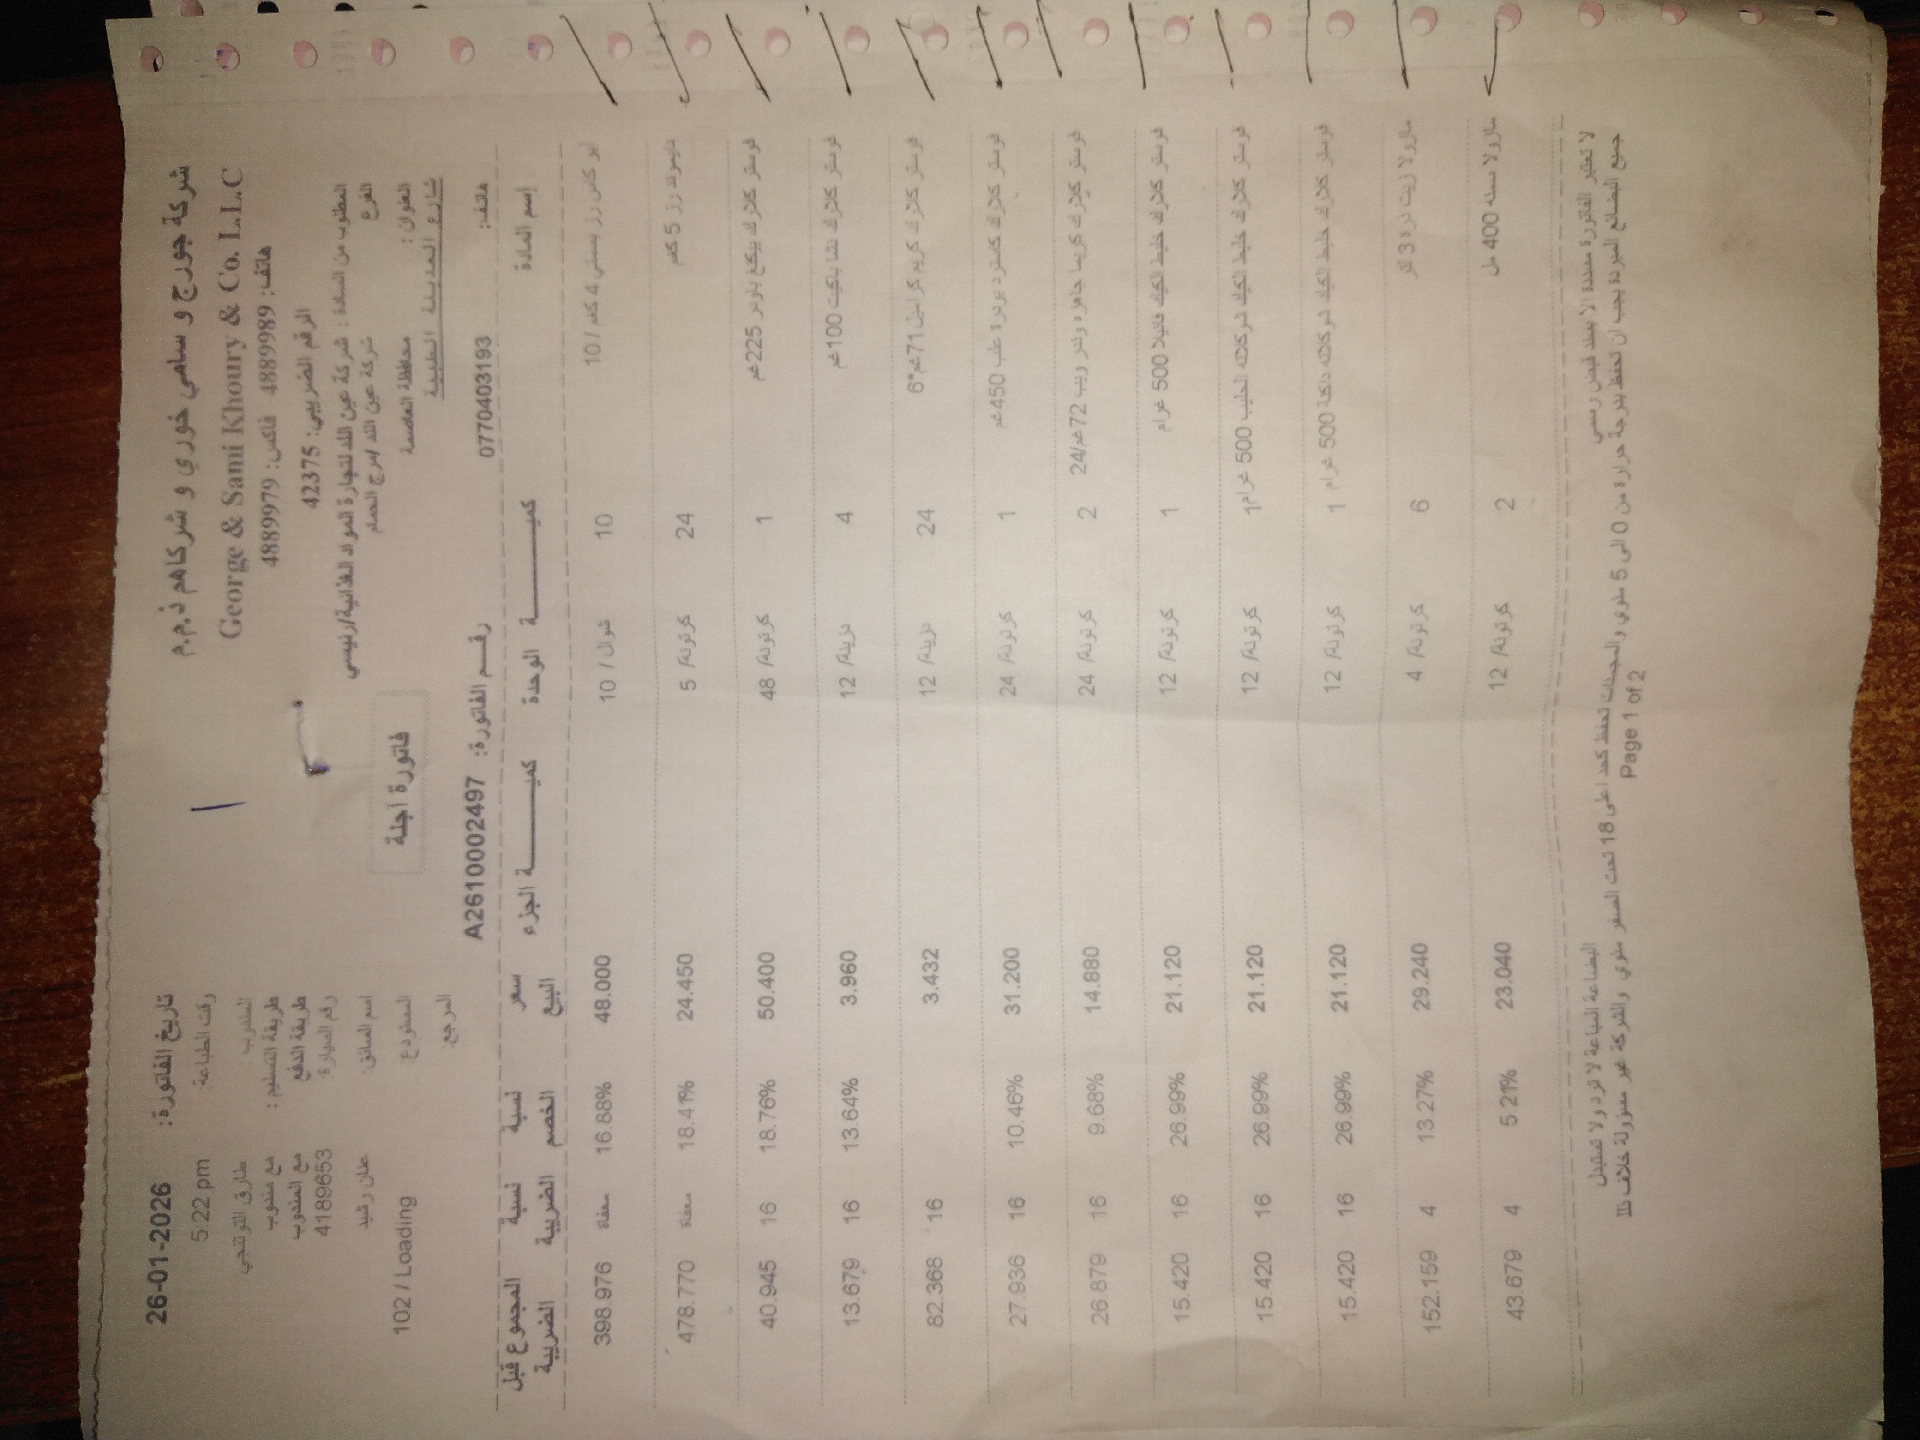 شركة جورج و سامي خوري و شركاهم ذ.م.م
George & Sami Khoury & Co. L.L.C
هاتف: 4889989 فاكس: 4889979
الرقم الضريبي: 42375
المطلوب من السادة : شركة عين الله لتجارة المواد الغذائية/رئيسي
الفرع شركة عين الله /مرج الحمام
العنوان : محافظة العاصمة
شارع المدينة الطبية
هاتف: 0770403193
فاتورة اجلة
رقم الفاتورة: A2610002497
تاريخ الفاتورة: 26-01-2026
وقت الطباعة: 5:22 pm
المندوب
طريقة التسليم : مع مندوب
طريقة الدفع مع المندوب
رقم السيارة: 4189653
اسم السائق:
المستودع: 102 / Loading
المرجع:
إسم المادة كميـــــة الوحدة كميـــــة الجزء سعر البيع نسبة الخصم نسبة الضريبة المجموع قبل الضريبة
ابو كاس رز بسمتي 4 كغم / 10 10 شوال / 10 48.000 16.88% معفاة 398.976
صنوايت رز 5 كغم 24 كرتونة/ 5 24.450 18.41% معفاة 478.770
فوستر كلارك بيكنغ باودر 225غم 1 كرتونة/ 48 50.400 18.76% 16 40.945
فوستر كلارك نشا باكيت 100غم 4 دزينة/ 12 3.960 13.64% 16 13.679
فوستر كلارك كريم كراميل 71غم*6 24 دزينة/ 12 3.432 16 82.368
فوستر كلارك كاسترد بودرة علب 450غم 1 كرتونة/ 24 31.200 10.46% 16 27.936
فوستر كلارك كريما جاهزة دريم ويب 72غم/24 2 كرتونة/ 24 14.880 9.68% 16 26.879
فوستر كلارك خليط الكيك فانيلا 500 غرام 1 كرتونة/ 12 21.120 26.99% 16 15.420
فوستر كلارك خليط الكيك شوكلاته الحليب 500 غرام 1 كرتونة/ 12 21.120 26.99% 16 15.420
فوستر كلارك خليط الكيك شوكلاته داكنة 500 غرام 1 كرتونة/ 12 21.120 26.99% 16 15.420
مازولا زيت ذرة 3 لتر 6 كرتونة/ 4 29.240 13.27% 4 152.159
مازولا سمنه 400 مل 2 كرتونة/ 12 23.040 5.21% 4 43.679
لا تعتبر الفاتورة مسددة الا بسند قبض رسمي البضاعة المباعة لا ترد ولا تستبدل
جميع البضائع المبردة يجب ان تحفظ بدرجة حرارة من 0 الى 5 مئوي والمجمدات تحفظ كحد اعلى 18 تحت الصفر مئوي والشركة غير مسؤولة خلاف ذلك
Page 1 of 2